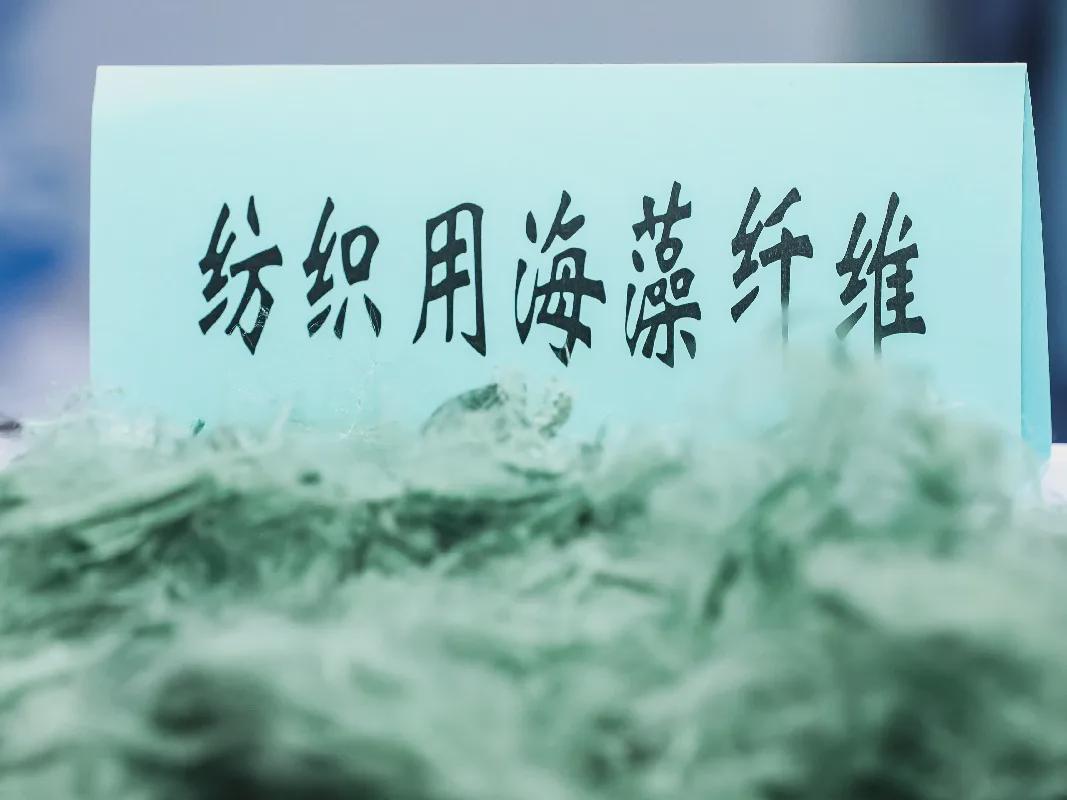 纺织用海藻纤维